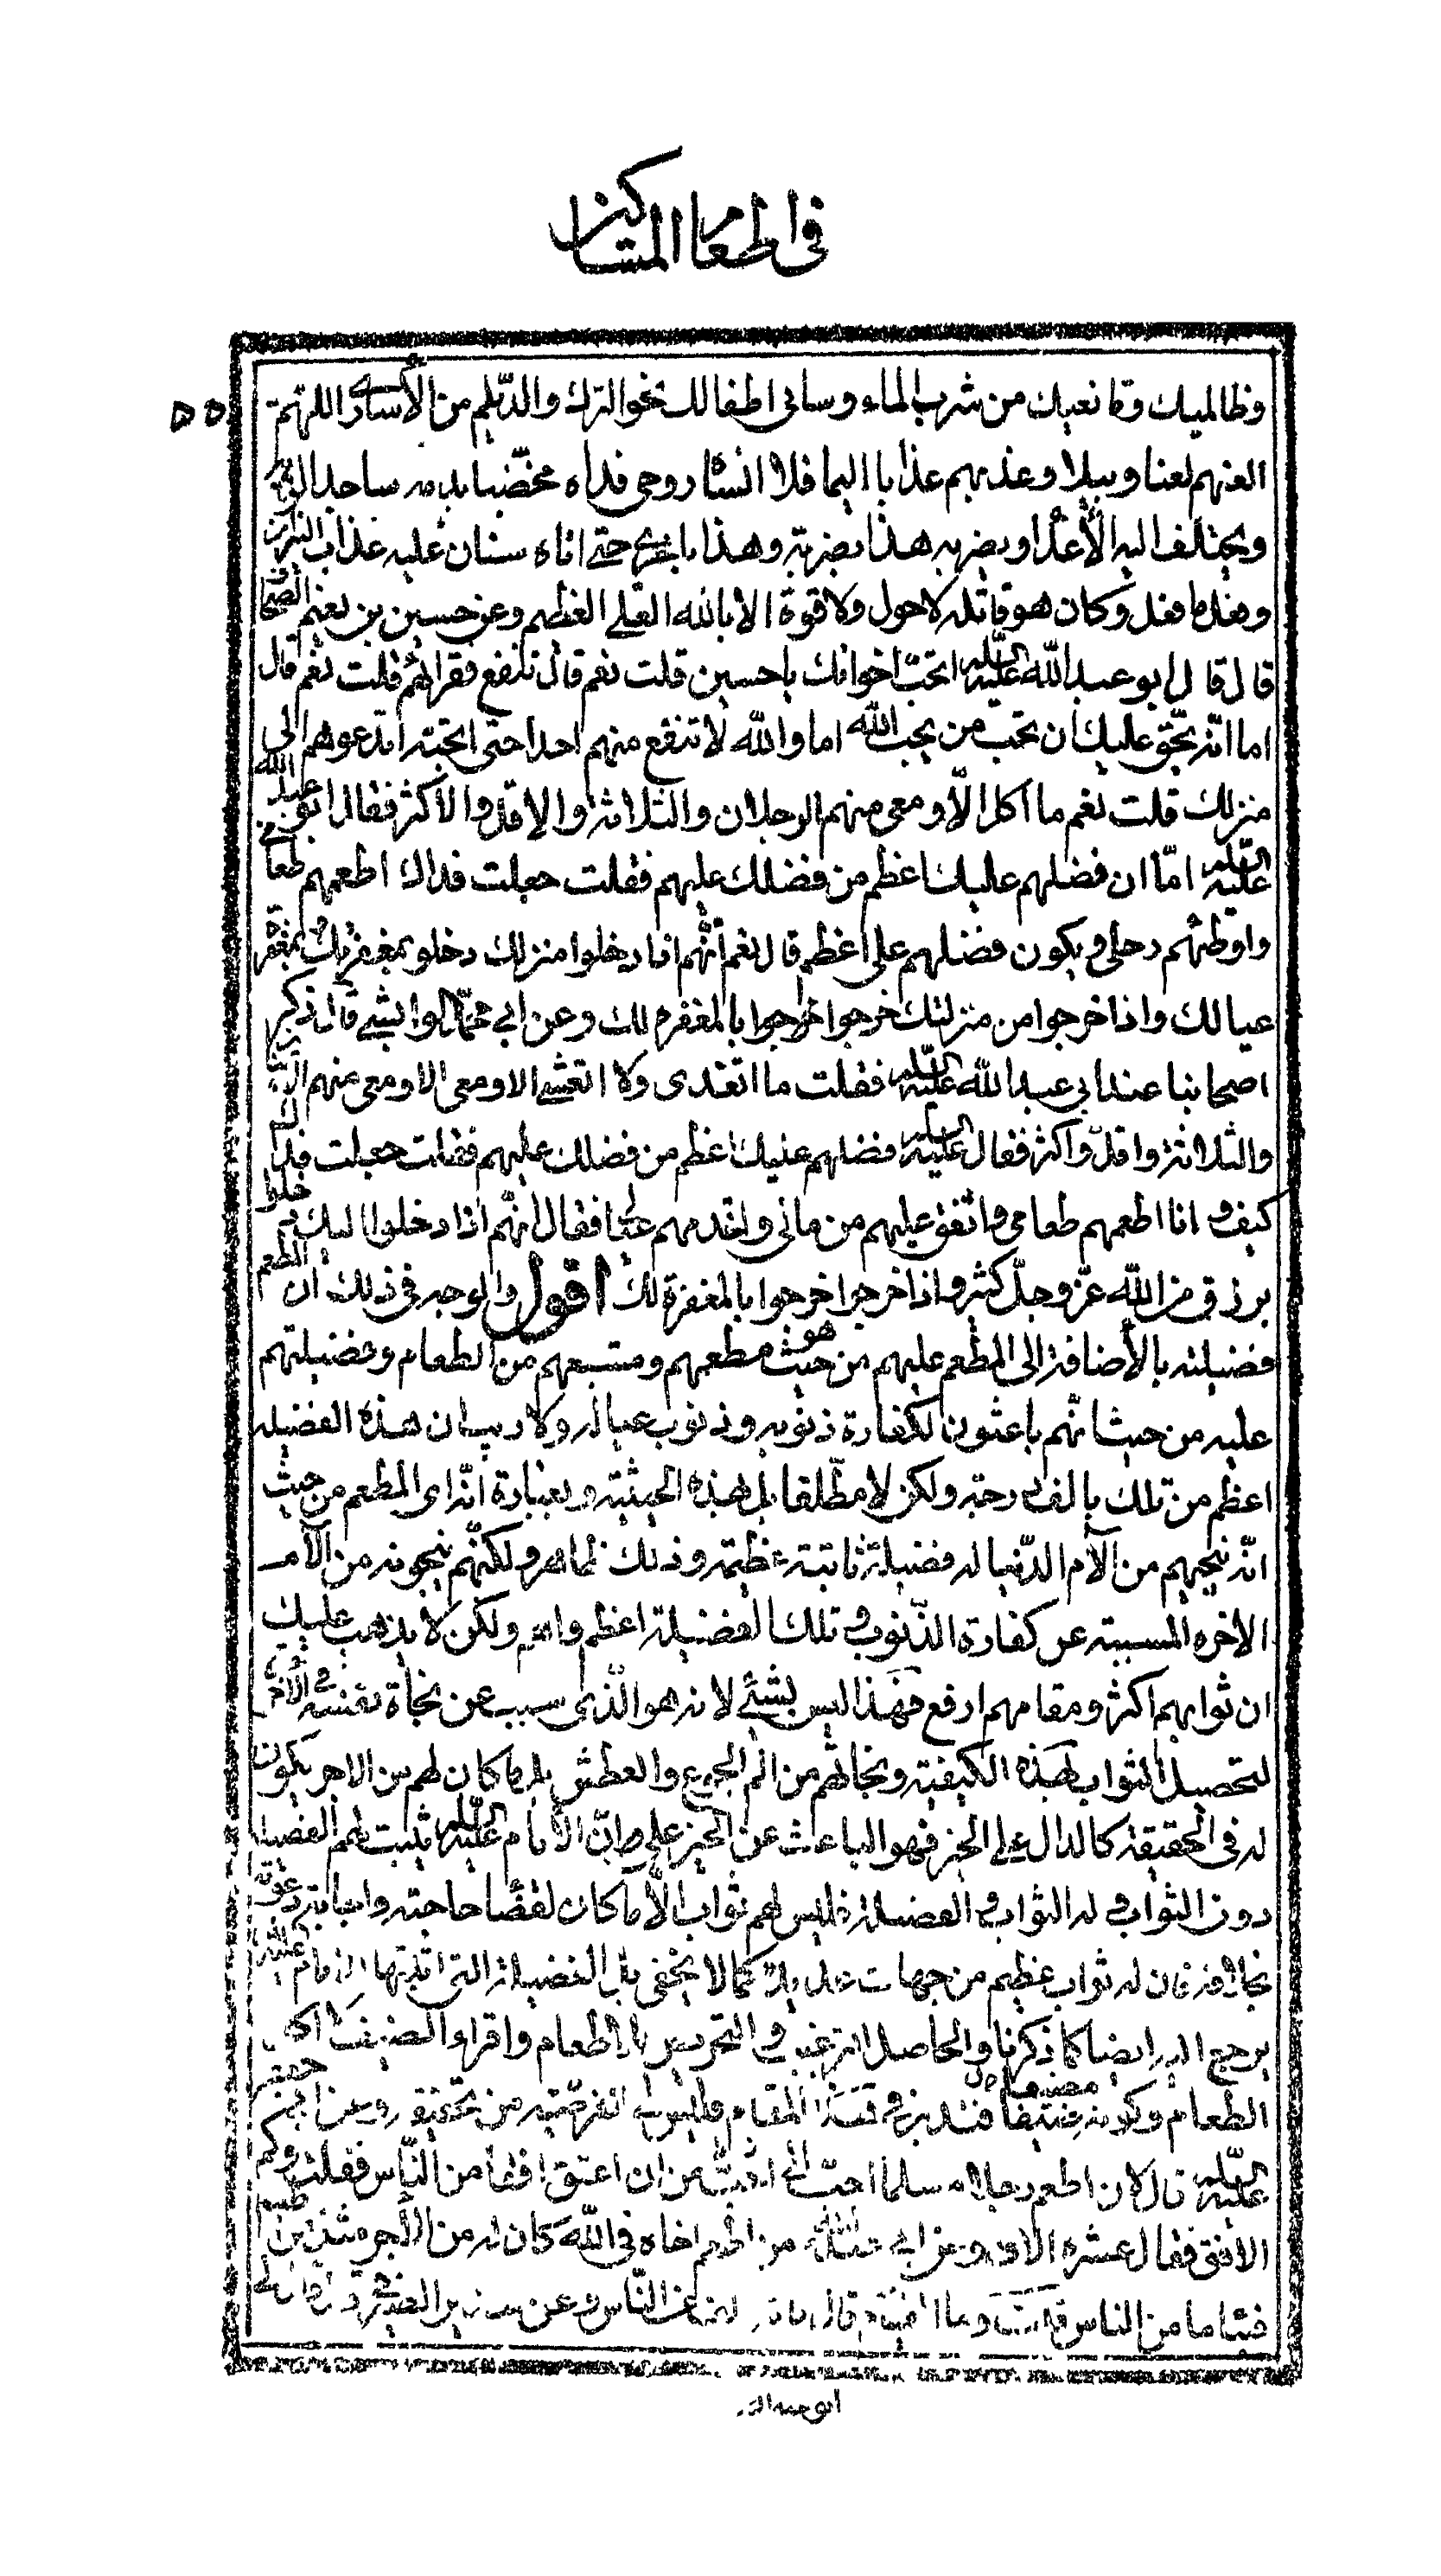 في اطعام المساكين
٥٥
وظالميك ومانعيك من شرب الماء وسابى اطفالك نحو الترك والديلم من الأسارى اللهم
العنهم لعنا وبيلا وعذبهم عذابا اليما فلا انسا روحى فداه مخضبا بدمه ساجدا لربه
ويختلف اليه الأعداء يضربه هذا بضربة وهذا باخرى حتى اتاه سنان عليه عذاب النيران
وفعل ما فعل وكان هو قاتله لا حول ولا قوة الا بالله العلي العظيم وعن حسين بن نعيم الصحاف
قال قال ابو عبد الله عليه السلام اتحب اخوانك يا حسين قلت نعم قال تنفع فقرائهم قلت نعم قال
اما انه يحق عليك ان تحب من يحب الله اما والله لا تنفع منهم احدا حتى تحبه اتدعوهم الى
منزلك قلت نعم ما آكل الا ومعى منهم الرجلان والثلاثة والاقل والاكثر فقال ابو عبد الله
عليه السلام اما ان فضلهم عليك اعظم من فضلك عليهم فقلت جعلت فداك اطعمهم طعامى
واوطئهم رحلى ويكون فضلهم على اعظم قال نعم انهم اذا دخلوا منزلك دخلو بمغفرتك ومغفرة
عيالك واذا خرجوا من منزلك خرجوا بالمغفرة لك وعن ابي محمد الوابشي قال ذكر
اصحابنا عند ابي عبد الله عليه السلام فقلت ما اتغدى ولا اتعشى الا ومعى منهم الاثنان
والثلاثة واقل واكثر فقال عليه السلام فضلهم عليك اعظم من فضلك عليهم فقلت جعلت فداك
كيف و انا اطعمهم طعامى وانفق عليهم من مالى واخدمهم عيالى فقال انهم اذا دخلوا اليك دخلوا
برزق من الله عز وجل كثير واذا خرجوا خرجوا بالمغفرة لك اقول والوجه فى ذلك ان المطعم
فضيلته بالأضافة الى المطعم عليهم من حيث هو مطعمهم ومشبعهم من الطعام وفضيلتهم
عليه من حيث انهم باعثون لكفارة ذنوبه وذنوب عياله ولا ريب ان هذه الفضيلة
اعظم من تلك بالف درجة ولكن لا مطلقا بل بهذه الحيثية وبعبارة انه اى المطعم من حيث
انه ينجيهم من آلام الدنيا له فضيلة ثابتة عظيمة وذلك ظاهر ولكنهم ينجونه من الآم
الاخره المسببة عن كفارة الذنوب و تلك الفضيلة اعظم واهم ولكن لا يذهب عليك
ان ثوابهم اكثر ومقامهم ارفع فهذا ليس بشئ لانه هو الذى سبب عن نجاة نفسه فى الاخرة
لتحصيل الثواب بهذه الكيفية ونجاتهم من الم الجوع والعطش بل ما كان لهم من الاجر يكون
له فى الحقيقة كالدال على الخير فهو الباعث عن الخير على ان الأمام عليه السلام يثبت لهم الفضيلة
دون الثواب و له الثواب و الفضيلة فليس لهم ثواب الا ما كان لقضا حاجته واجابة دعوته
بخلافه فان له ثواب عظيم من جهات عديدة كما لا يخفى بل الفضيلة التى اثبتها الامام عليه السلام
يرجع اليه ايضا كما ذكرنا والحاصل الترغيب و التحريص بالاطعام واقراء الضيف
الطعام وكونه مضيفا فتدبر فى هذا المقام فليس لى الفرصة من تحقيقه وعن ابي جعفر
عليه السلام قال لان اطعم رجلا مسلما احب الى من ان اعتق افقا من الناس فقلت وكم
الافق فقال عشرة الاف وعن ابي عبد الله من اطعم اخاه فى الله كان له من الأجر مثل من اطعم
فئاما من الناس قلت وما الفئام قال مائة الف من الناس وعن سدير الصيرفى قال قال لى
ابو عبد الله